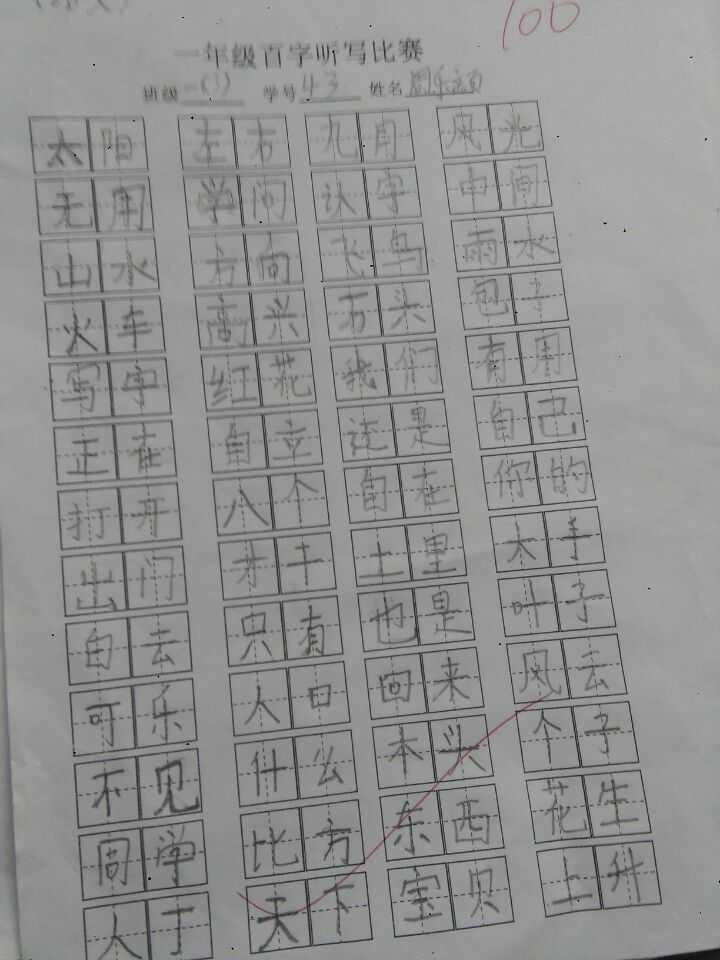 100
一年级百字听写比赛
班级 一(3) 学号 43 姓名
太阳 左右 九月 风光
无用 学问 认字 中间
山水 方向 飞鸟 雨水
火车 高兴 石头 包子
写字 红花 我们 有用
正在 自立 这是 自己
打开 八个 自在 你的
出门 才干 土里 大手
白云 只有 也是 叶子
可乐 人口 回来 风云
不见 什么 木头 个子
同学 比方 东西 花生
人丁 天下 宝贝 上升